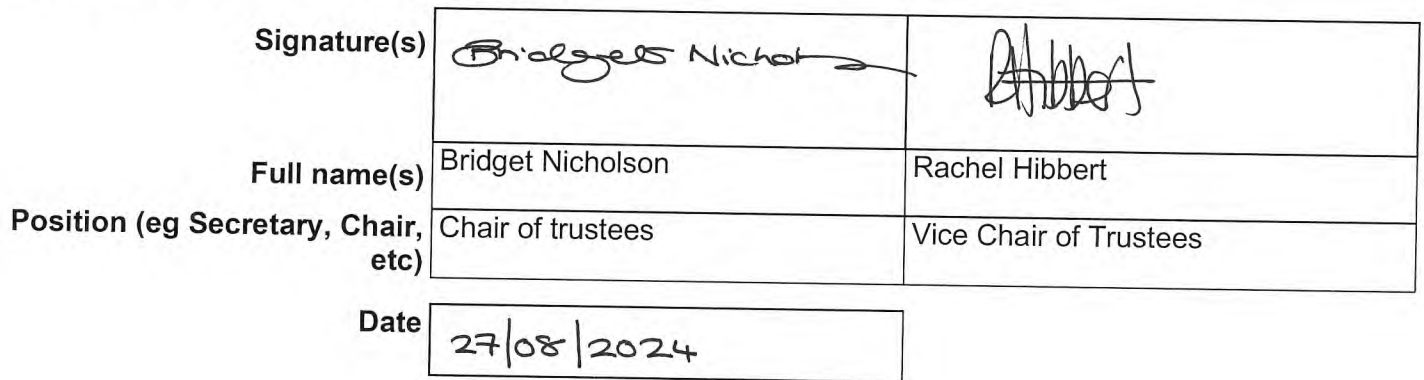 Signature(s) Bridget Nicholson RHibbert
Full name(s) Bridget Nicholson Rachel Hibbert
Position (eg Secretary, Chair, Chair of trustees Vice Chair of Trustees
etc)
Date 27/08/2024